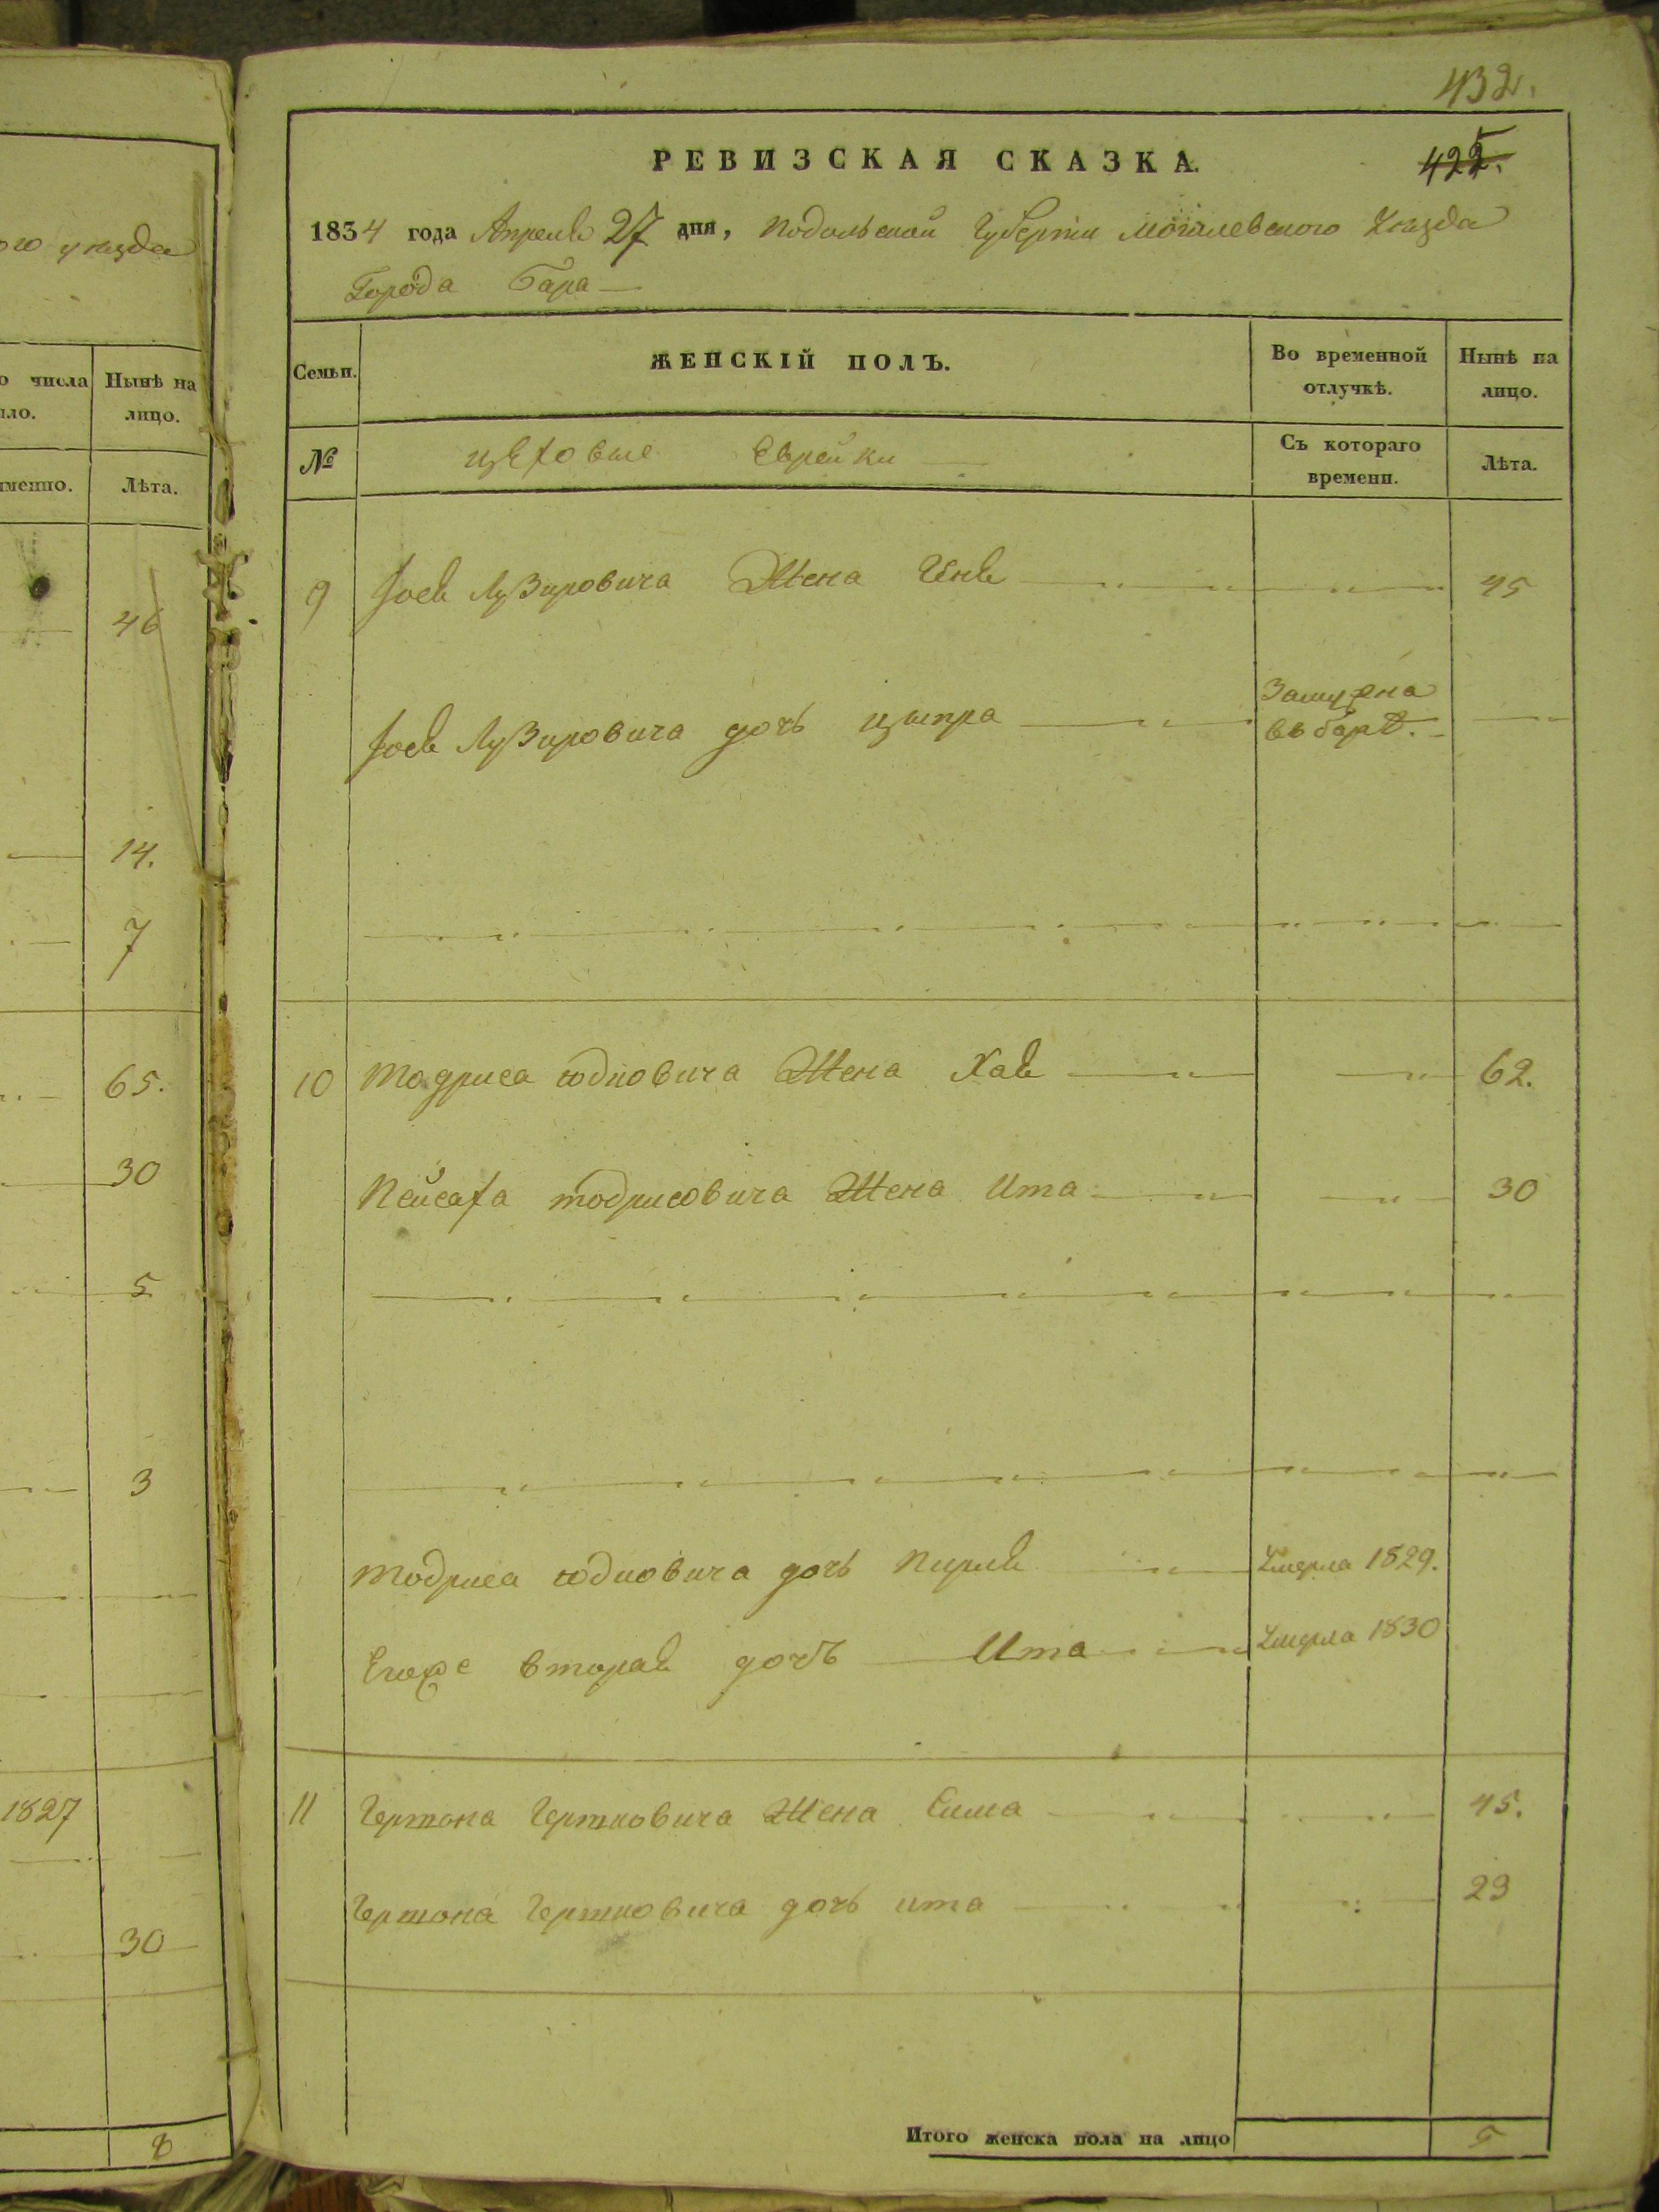 ого уѣзда
о числа
ыло.
Нынѣ на
лицо.
именно.
Лѣта.
46
14.
7
65.
30
5
3
1827
30
8
432.
РЕВИЗСКАЯ СКАЗКА.
422.
1834 года Апреля 27 дня, Подольской Губерніи Могилевского Уѣзда
Города Бара
Семьи.
ЖЕНСКІЙ ПОЛЪ.
Во временной
отлучкѣ.
Нынѣ на
лицо.
№
Цѣховые Еврейки
Съ котораго
времени.
Лѣта.
9 Лузировича Жена 45
Лузировича дочь Цыпра Замужна
въ барѣ.
10 Тодриса юдковича Жена Хая 62.
Пейсаха тодрисовича Жена Ита 30
Тодриса юдковича дочь Перля Умерла 1829.
Егоже вторая дочь Ита Умерла 1830
11 Гершона Гершковича Жена Сима 45.
Гершона Гершковича дочь ита 23
Итого женска пола на лицо 5